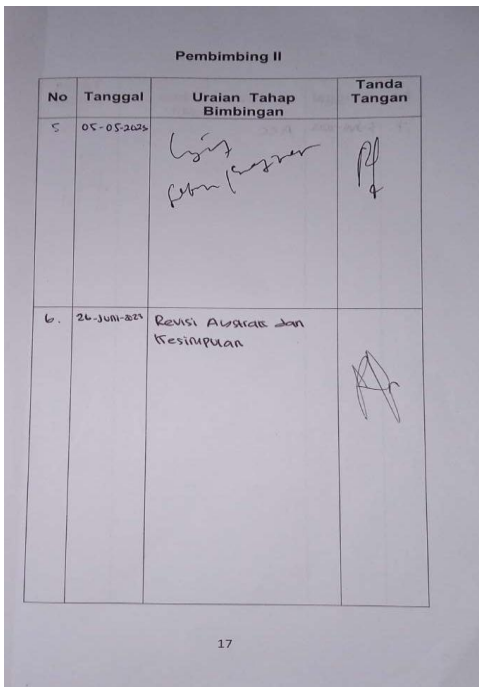 Pembimbing II
No Tanggal Uraian Tahap Bimbingan Tanda Tangan
5 05-05-2023
6. 26-Juni-2023 Revisi Abstrak dan
Kesimpulan
17